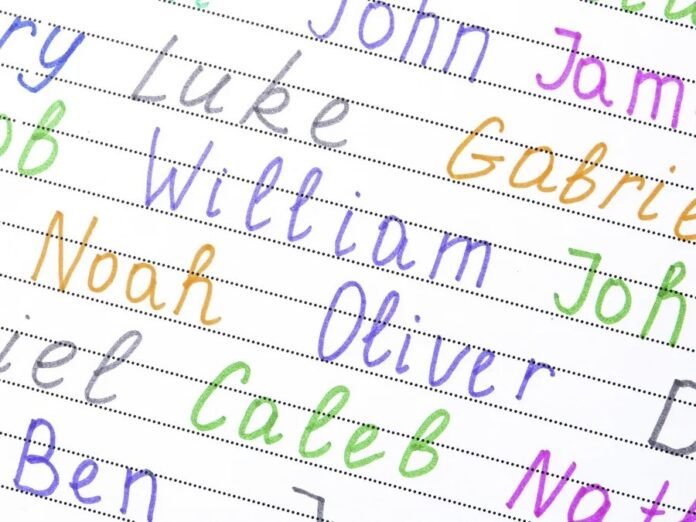 John Jam
ry Luke Gabrie
ob William Joh
Noah Oliver D
iel Caleb Nat
Ben